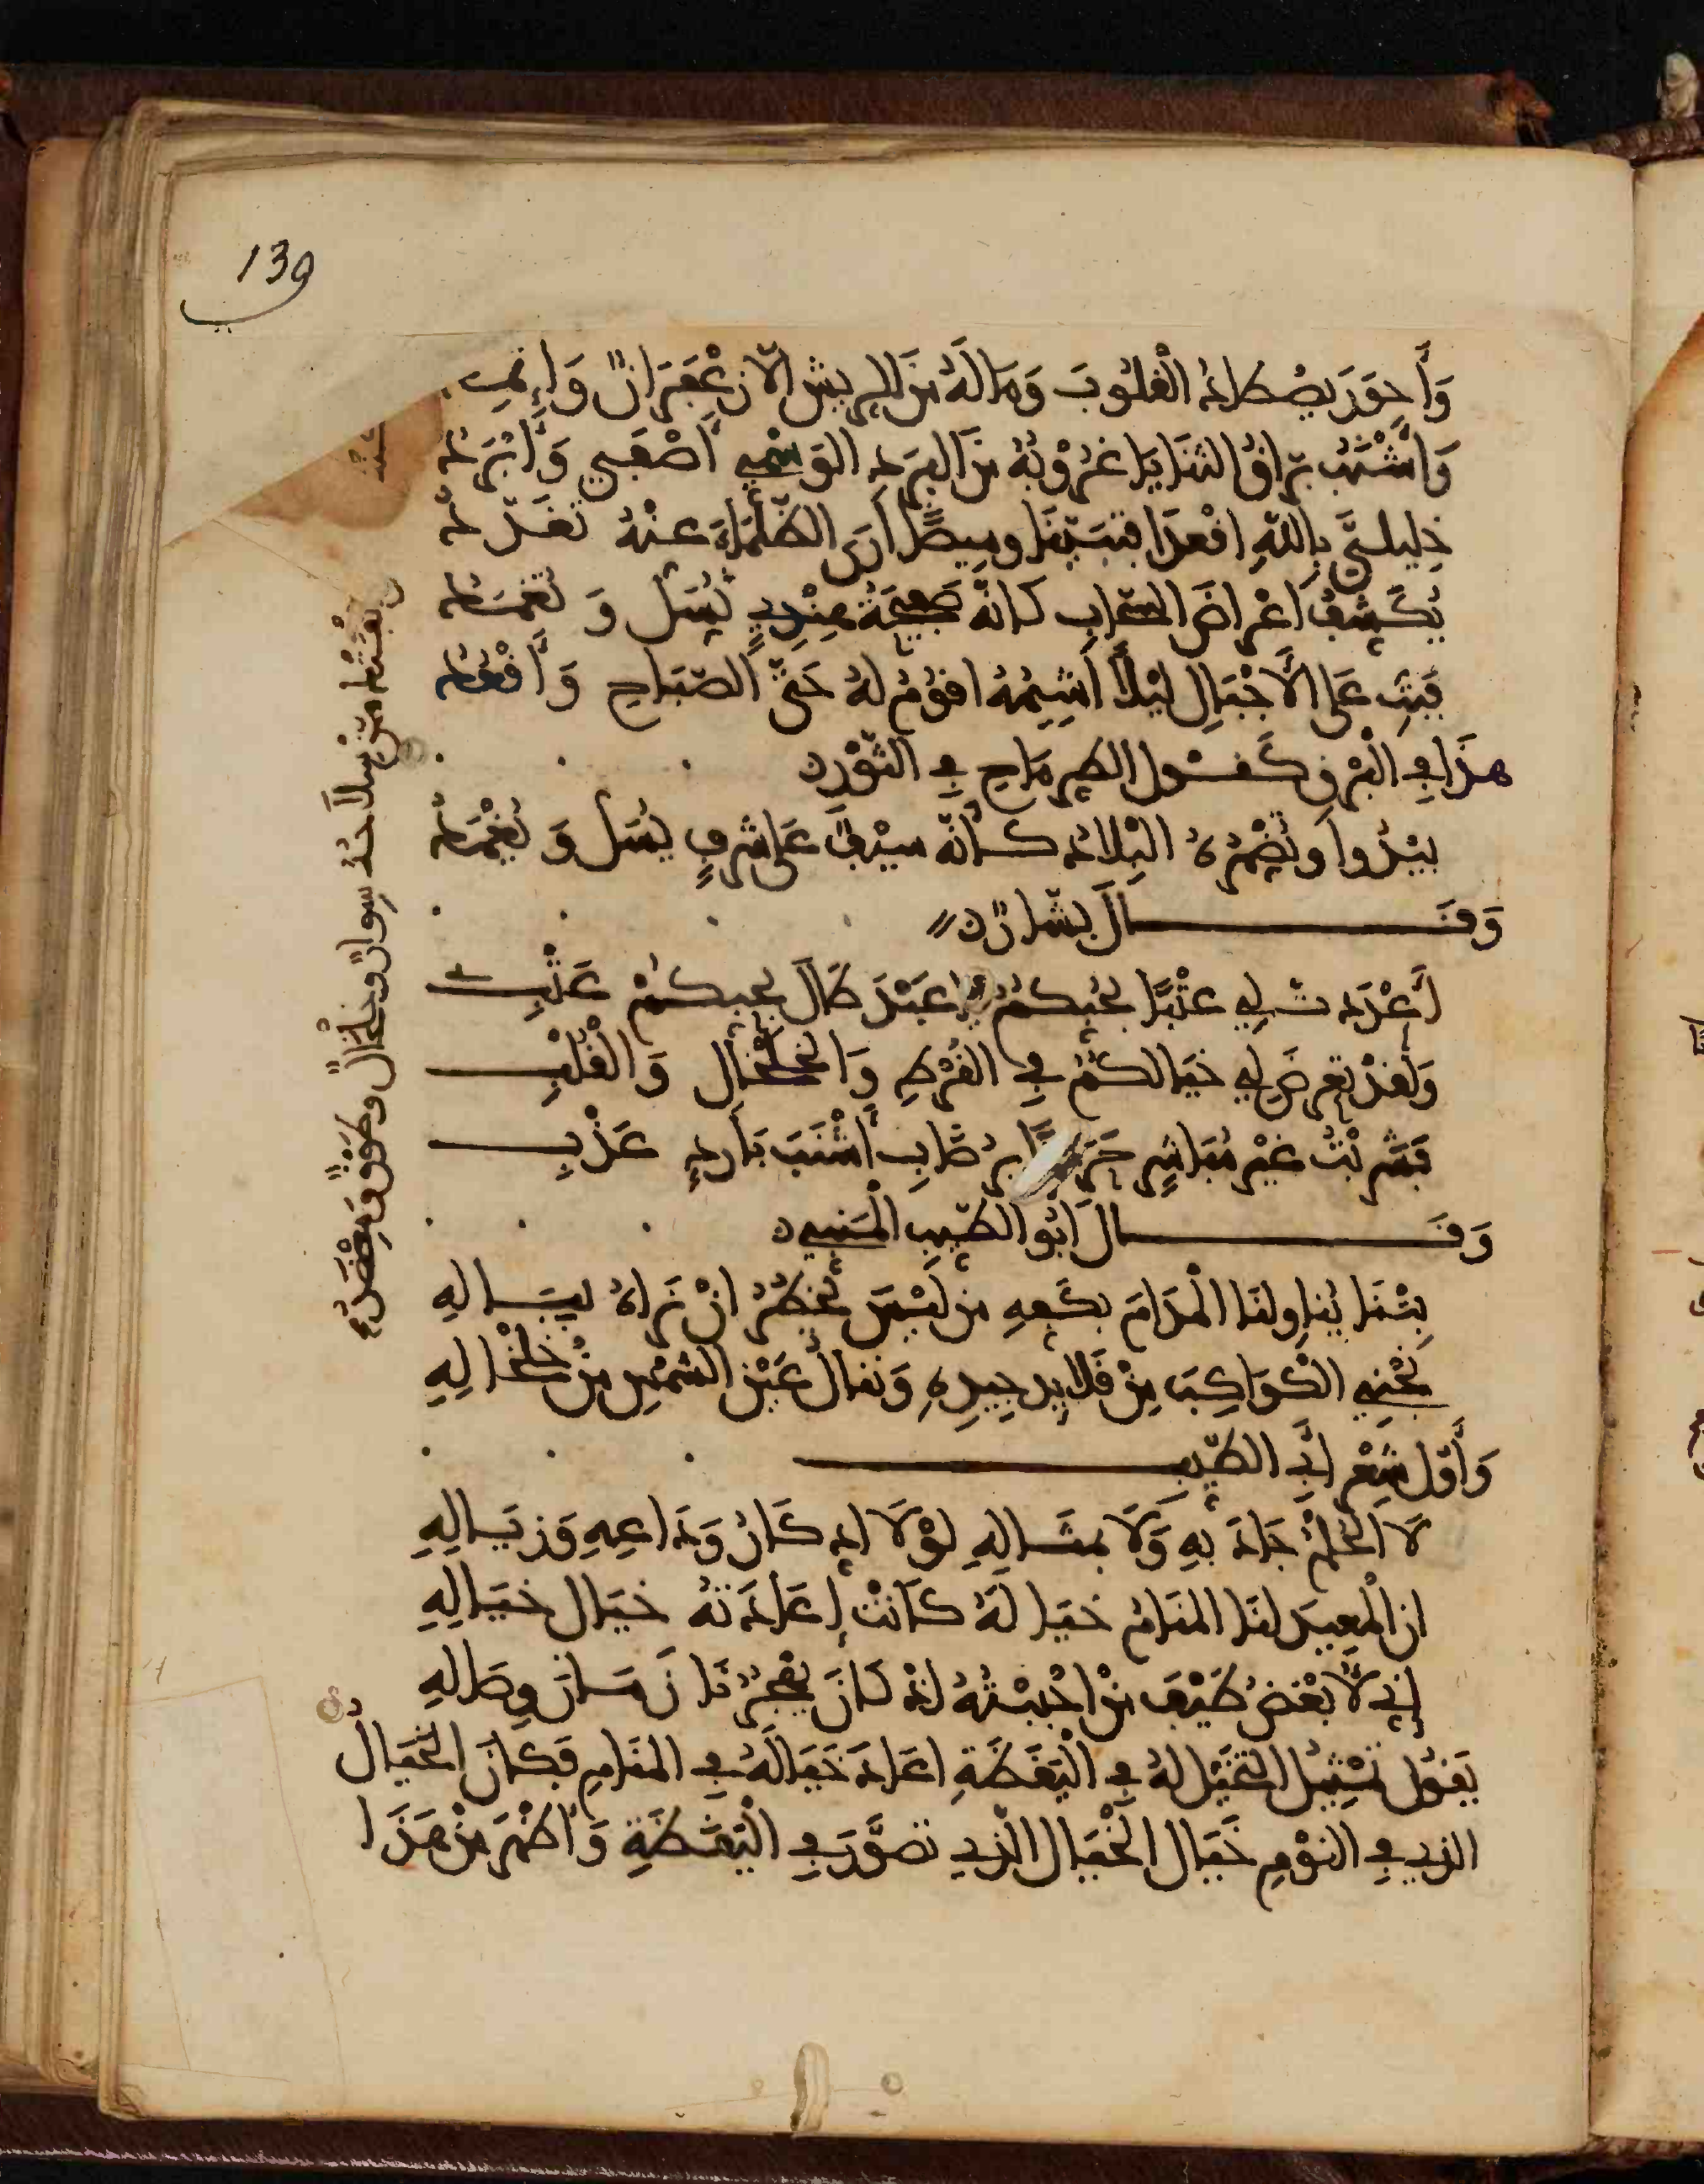 139
وَأَحوَر يصْطاد الْقلُوبَ وَمَا لَهُ مِنَ الرِيشِ الّا زعْفَرَانٌ وَإثمِـ
وَأَشْنَبُ برّاق الثنَايَا غرُوبُهُ مِنَ البَرَدِ الوَسْمِي أَصْفَى وَأَبْرَدُ
خَلِيلَيَّ بِاللّهِ اقْعدَا فتبيّنَا وميضًا أرَى الظّلْمَاءَ عنْهُ تقدّد
يُكَشِّفُ أعْرَاضَ السّحَابِ كَانّهُ صفِيحَةُ هِنْدِيٍ تُسَلُّ وَتُغْمَدُ
فَبِتِّ عَلَى الأَجْبَالِ لَيْلًا أَشِيمُهُ اقوُمُ لهُ حَتَّى الصّبَاحِ وَأَقْعُدُ
هذَا فِي الْبَرْقِ كَقوْل الطرِمّاحِ فِي الثّوْرِ
يبْدُوا وتُضْمِرُهُ الْبِلَادُ كَأَنّهُ سيْفٌ عَلَى شَرَفٍ يُسَلُّ وَيُغْمَدُ
وَقَالَ بشّارٌ
أَعْدَدت لِي عتْبًا بحُبِّكُمُ يا عَبْدَ طَالَ بحبكُمْ عَتْبِـي
وَلَقدْ تعرضَ لِي خيَالكُمُ فِي القُرْطِ وَالخَلْخَالِ وَالْقُلْبِ
فَشربْتُ غيْرَ مُبَاشِرٍ حَرَجًا برُضَابِ أَشْنَبَ بَارِدٍ عَذْبِ
وَقَالَ أَبُو الطّيبِ الْمتَنبي
بِتْنَا يُنَاولنَا الْمدَامَ بكَفهِ مَن لَيْسَ يخطرُ انْ نَراهُ ببَالِهِ
نَجْنِي الْكوَاكِبَ مِنْ قَلَايِدِ جِيدِهِ وَنَنالُ عَيْنَ الشمْسِ مِنْ خلْخَالِهِ
وَأَوّل شِعْرِ أَبِي الطّيّبِ
لَا الْحُلْمُ جَادَ بِهِ وَلَا بمثَالِهِ لوْلَا ادكَارُ وَدَاعِهِ وَزيَالِهِ
ان الْمعِيدَ لنَا المنَامُ خيَالَهُ كَانَتْ إعَادَتهُ خيَال خيَالِهِ
إنِي لَأُبْغضُ طَيْفَ مَنْ احْبَبْتُهُ إذْ كَانَ يهْجُرُنَا زَمَانَ وِصَالِهِ
يَقولُ تمْثِيلُ التخَيّل لهُ فِي الْيَقَظَةِ اعَادَ خَيَالَهُ فِي المنَامِ فَكانَ الْخيَالُ
الذِي فِي النوْمِ خيَال الْخيَال الّذِي تصَوَّرَ فِي الْيَقَظَةِ وَأظْهَرَ مِنْ هَذَا
يقْتُلْ مِنْ سلَاحهُ سِوارٌ وخلْخَالٌ وطَوْقٌ ومِعْضَدُ